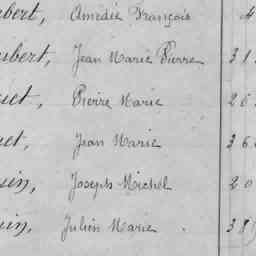 bert, Amédée François 4
ubert, Jean Marie Pierre 31
uet, Pierre Marie 26
uet, Jean Marie 36
uin, Joseph Michel 20
uin, Julien Marie 38